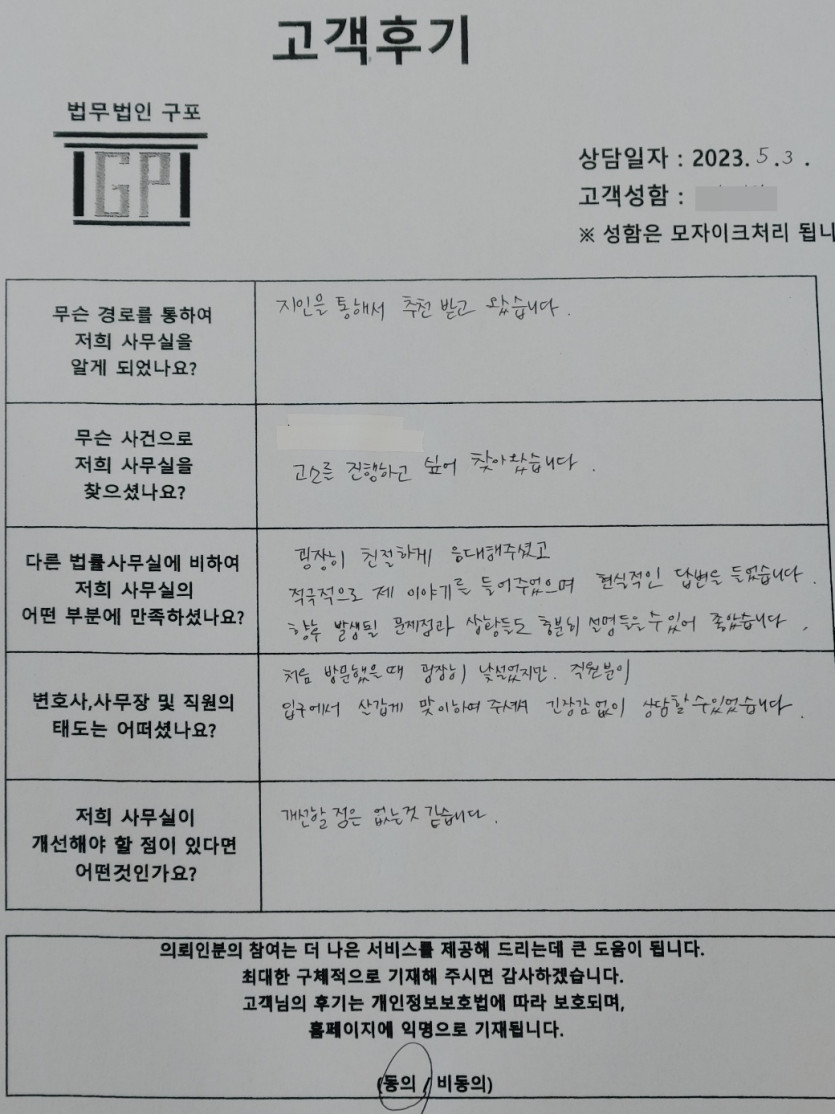 고객후기
법무법인 구포
GP
상담일자 : 2023. 5 . 3 .
고객성함 :
※ 성함은 모자이크처리 됩니
무슨 경로를 통하여
저희 사무실을
알게 되었나요?
지인을 통해서 추천 받고 왔습니다.
무슨 사건으로
저희 사무실을
찾으셨나요?
고소를 진행하고 싶어 찾아왔습니다.
다른 법률사무실에 비하여
저희 사무실의
어떤 부분에 만족하셨나요?
굉장히 친절하게 응대해주셨고
적극적으로 제 이야기를 들어주었으며 현실적인 답변을 들었습니다.
향후 발생될 문제점과 상황들도 충분히 설명들을수있어 좋았습니다.
변호사,사무장 및 직원의
태도는 어떠셨나요?
처음 방문했을때 굉장히 낯설었지만. 직원분이
입구에서 살갑게 맞이하여 주셔서 긴장감없이 상담할수있었습니다.
저희 사무실이
개선해야 할 점이 있다면
어떤것인가요?
개선할 점은 없는것 같습니다.
의뢰인분의 참여는 더 나은 서비스를 제공해 드리는데 큰 도움이 됩니다.
최대한 구체적으로 기재해 주시면 감사하겠습니다.
고객님의 후기는 개인정보보호법에 따라 보호되며,
홈페이지에 익명으로 기재됩니다.
(동의 / 비동의)